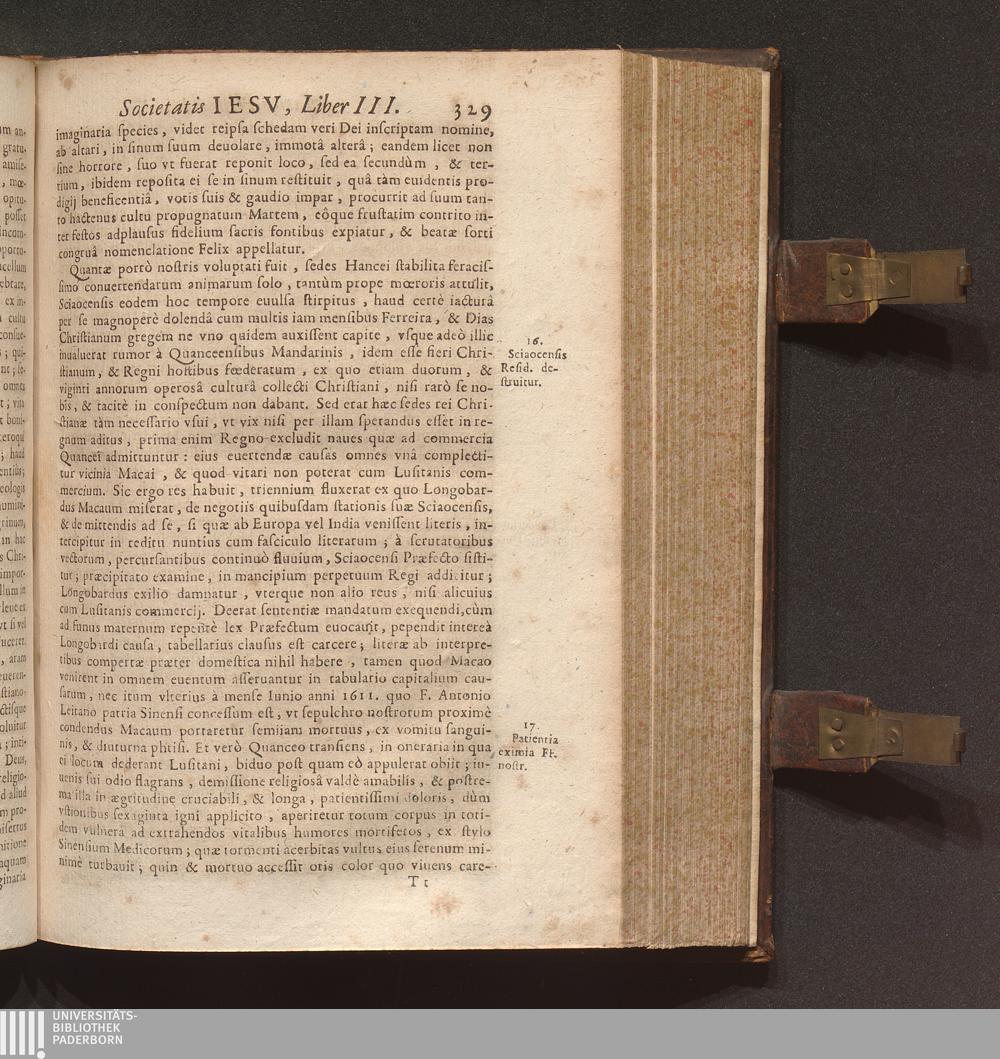 Societatis IESV, Liber III. 329
imaginaria ſpecies, videt reipſa ſchedam veri Dei inſcriptam nomine,
ab altari, in ſinum ſuum deuolare, immotâ alterâ; eandem licet non
ſine horrore, ſuo vt fuerat reponit loco, ſed ea ſecundùm, & ter-
tium, ibidem repoſita ei ſe in ſinum reſtituit, quâ tàm euidentis pro-
digij beneficentiâ, votis ſuis & gaudio impar, procurrit ad ſuum tan-
to hactenus cultu propugnatum Martem, eôque fruſtatim contrito in-
ter feſtos adplauſus fidelium ſacris fontibus expiatur, & beatæ ſorti
congruâ nomenclatione Felix appellatur.
Quantæ porrò noſtris voluptati fuit, ſedes Hancei ſtabilita feraciſ-
ſimo conuertendarum animarum ſolo, tantùm prope mœroris attulit,
Sciaocenſis eodem hoc tempore euulſa ſtirpitus, haud certè iacturâ
per ſe magnoperè dolendâ cum multis iam menſibus Ferreira, & Dias
Chriſtianum gregem ne vno quidem auxiſſent capite, vſque adeò illic
inualuerat rumor à Quanceenſibus Mandarinis, idem eſſe fieri Chri-
ſtianum, & Regni hoſtibus fœderatum, ex quo etiam duorum, &
viginti annorum operosâ culturâ collecti Chriſtiani, niſi rarò ſe no-
bis, & tacitè in conſpectum non dabant. Sed erat hæc ſedes rei Chri-
ſtianæ tàm neceſſario vſui, vt vix niſi per illam ſperandus eſſet in re-
gnum aditus, prima enim Regno excludit naues quæ ad commercia
Quancei admittuntur: eius euertendæ cauſas omnes vnâ complecti-
tur vicinia Macai, & quod vitari non poterat cum Luſitanis com-
mercium. Sic ergo res habuit, triennium fluxerat ex quo Longobar-
dus Macaum miſerat, de negotiis quibuſdam ſtationis ſuæ Sciaocenſis,
& de mittendis ad ſe, ſi quæ ab Europa vel India veniſſent literis, in-
tercipitur in reditu nuntius cum faſciculo literarum; à ſcrutatoribus
vectorum, percurſantibus continuò fluuium, Sciaocenſi Præfecto ſiſti-
tur; præcipitato examine, in mancipium perpetuum Regi addicitur;
Longobardus exilio damnatur, vterque non alio reus, niſi alicuius
cum Luſitanis commercij. Deerat ſententiæ mandatum exequendi, cùm
ad funus maternum repentè lex Præfectum euocauit, pependit intereà
Longobardi cauſa, tabellarius clauſus eſt carcere; literæ ab interpre-
tibus compertæ præter domeſtica nihil habere, tamen quod Macao
venirent in omnem euentum aſſeruantur in tabulario capitalium cau-
ſarum, nec itum vlterius à menſe Iunio anni 1611. quo F. Antonio
Leitano patria Sinenſi conceſſum eſt, vt ſepulchro noſtrorum proximè
condendus Macaum portaretur ſemiiam mortuus, ex vomitu ſangui-
nis, & diuturna phtiſi. Et verò Quanceo tranſiens, in oneraria in qua
ei locum dederant Luſitani, biduo poſt quam eò appulerat obiit; iu-
uenis ſui odio flagrans, demiſſione religiosâ valdè amabilis, & poſtre-
ma illa in ægritudine cruciabili, & longa, patientiſſimi doloris, dùm
vſtionibus ſexaginta igni applicito, aperiretur totum corpus in toti-
dem vulnera ad extrahendos vitalibus humores mortiferos, ex ſtylo
Sinenſium Medicorum; quæ tormenti acerbitas vultus eius ſerenum mi-
nimè turbauit; quin & mortuo acceſſit oris color quo viuens care-
T t
16.
Sciaocenſis
Reſid. de-
ſtruitur.
17.
Patientia
eximia FF.
noſtr.
UNIVERSITÄTS-
BIBLIOTHEK
PADERBORN